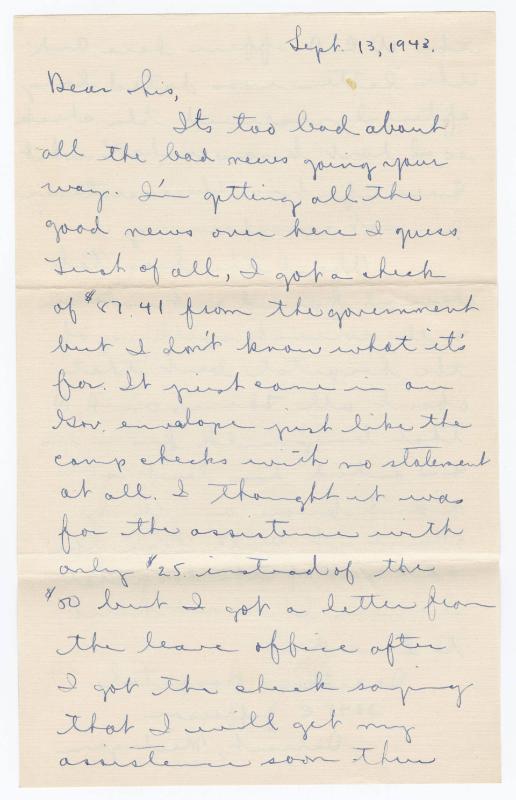 Sept. 13, 1943.
Dear Sis,
Its too bad about
all the bad news going your
way. I'm getting all the
good news over here I guess
First of all, I got a check
of $87.41 from the government
but I don't know what it's
for. It just came in an
Gov. envelope just like the
camp checks with no statement
at all. I thought it was
for the assistence with
only $25. instead of the
$50 but I got a letter from
the leave office after
I got the check saying
that I will get my
assistence soon thru